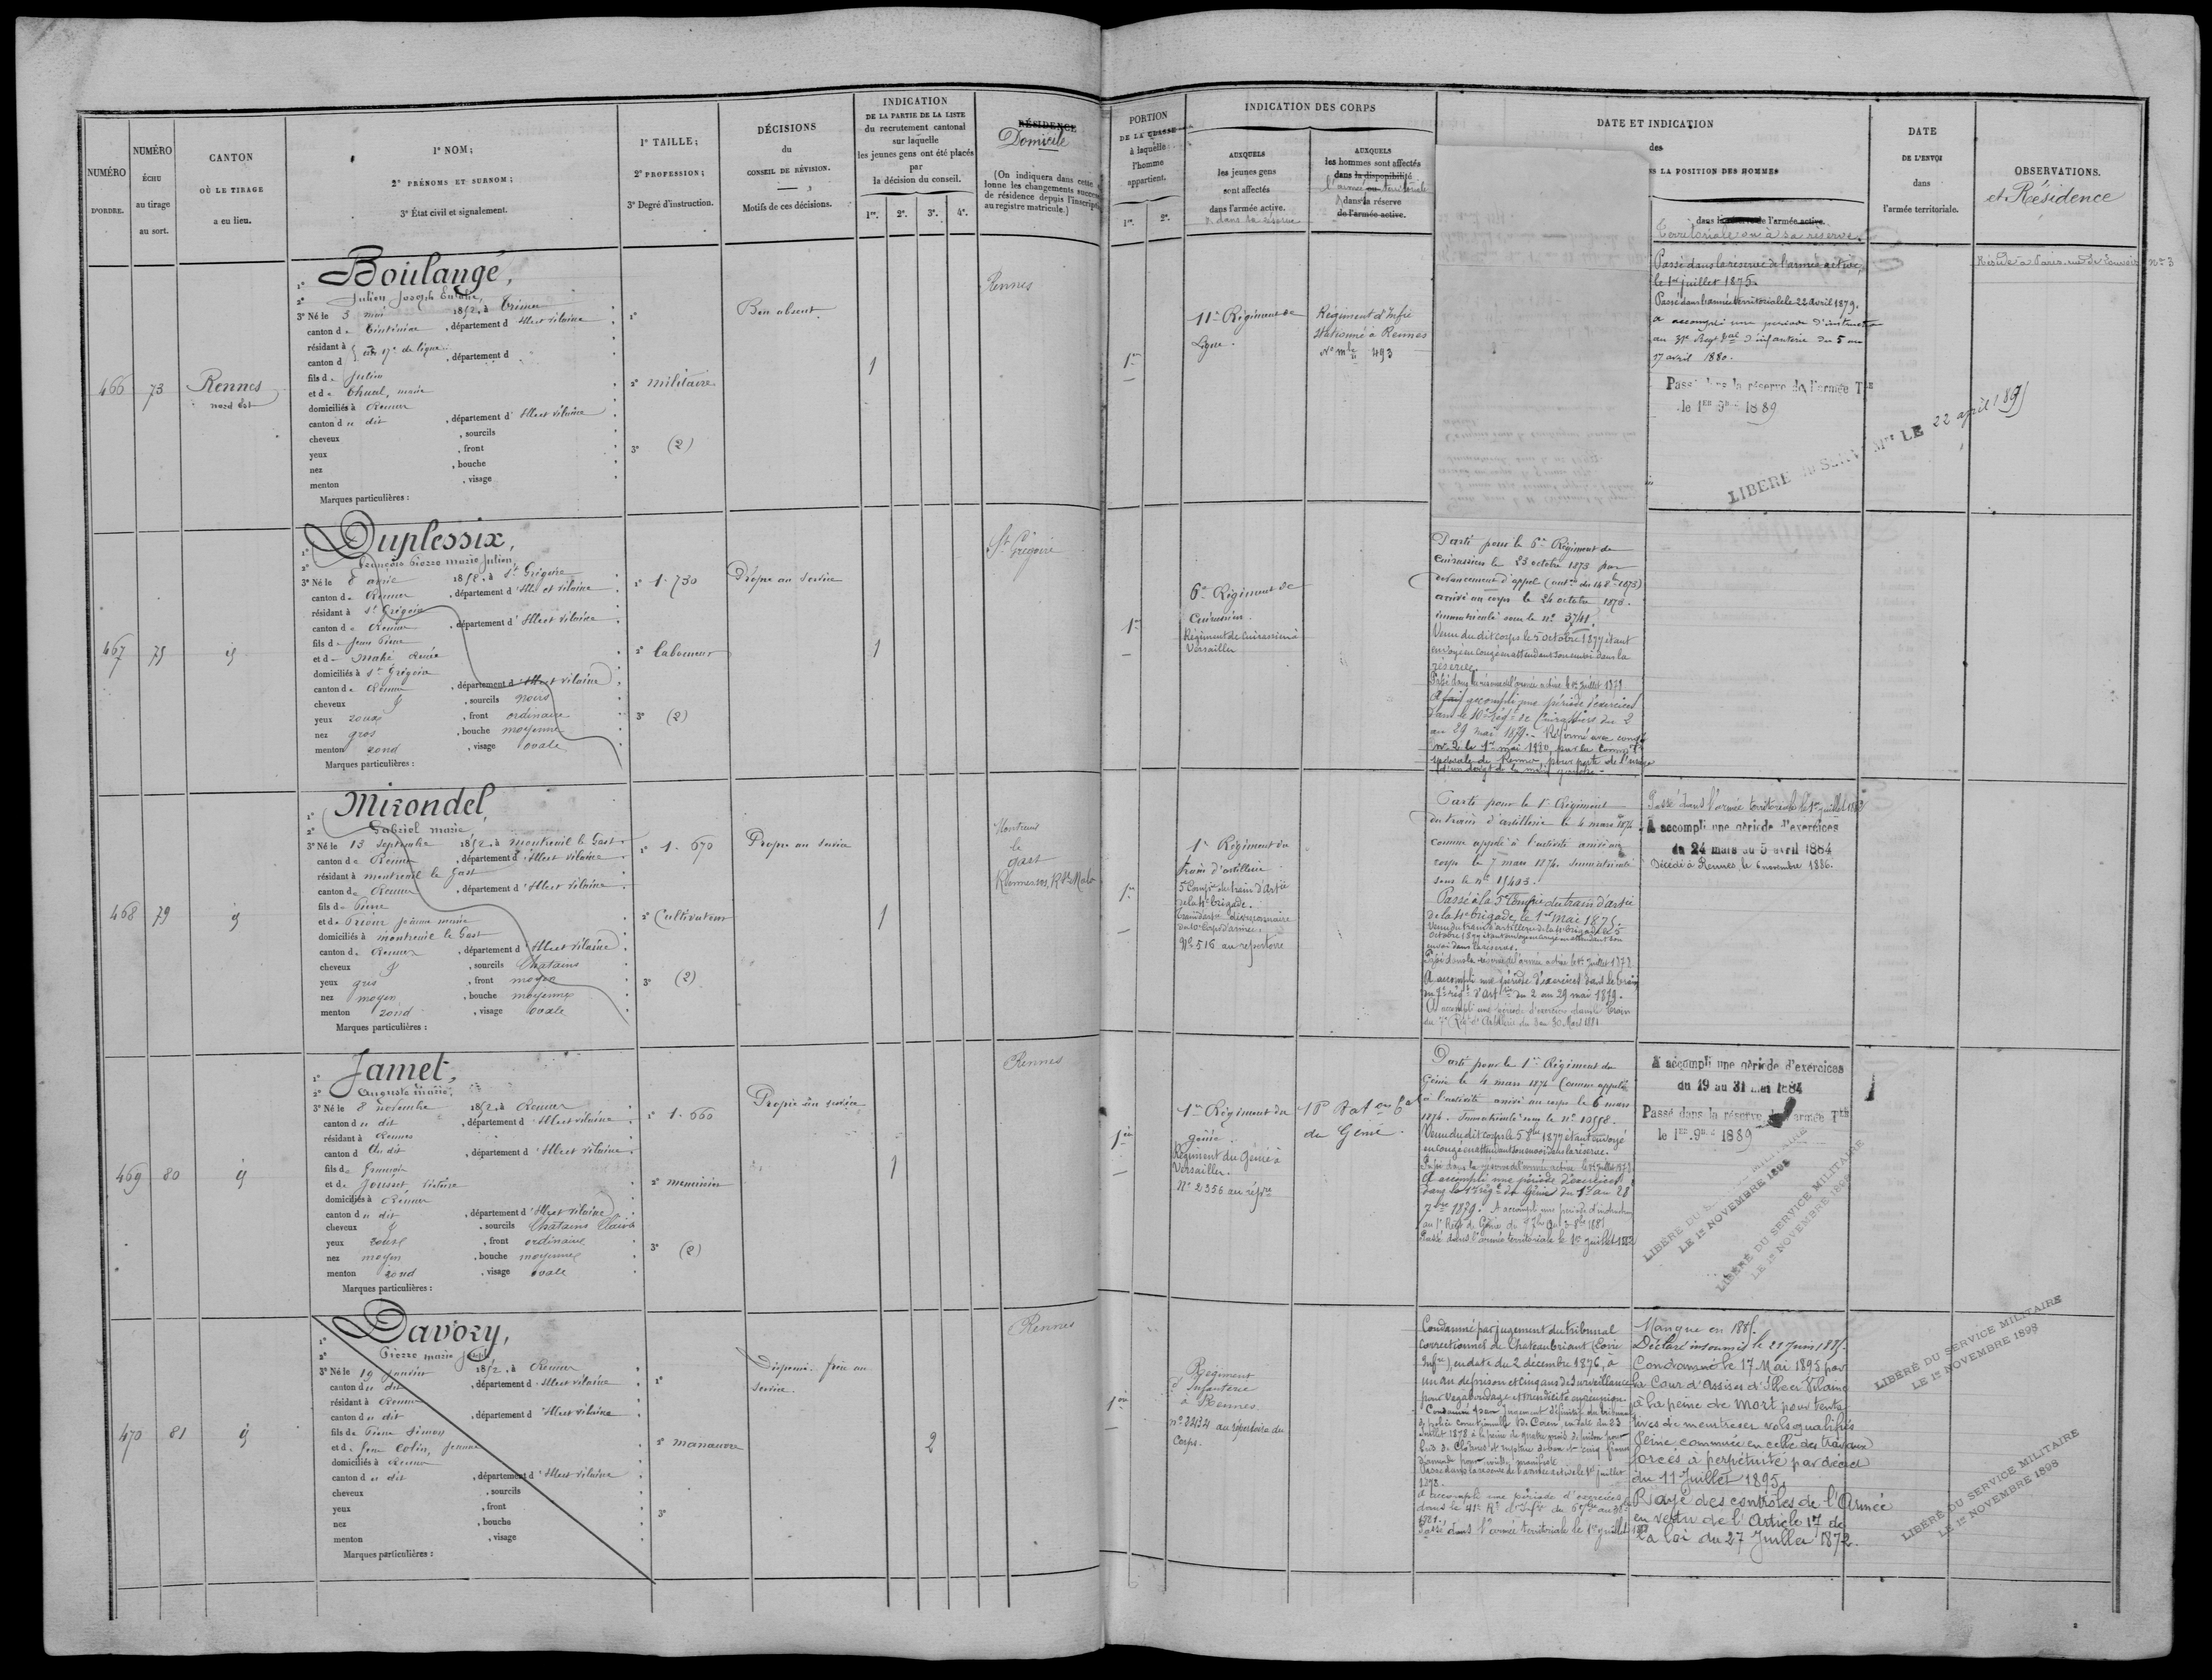 NUMÉRO
D'ORDRE.
NUMÉRO
ÉCHU
au tirage
au sort.
CANTON
OÙ LE TIRAGE
a eu lieu.
1° NOM;
2° PRÉNOMS ET SURNOM;
3° État civil et signalement.
1° TAILLE;
2° PROFESSION;
3° Degré d'instruction.
DÉCISIONS
du
CONSEIL DE RÉVISION.
Motifs de ces décisions.
INDICATION
DE LA PARTIE DE LA LISTE
du recrutement cantonal
sur laquelle
les jeunes gens ont été placés
par
la décision du conseil.
1re. 2e. 3e. 4e.
RÉSIDENCE
Domicile
(On indiquera dans cette
lonne les changements
de résidence depuis
au registre matricule.)
PORTION
DE LA CLASSE
à laquelle
l'homme
appartient.
1re. 2e.
INDICATION DES CORPS
AUXQUELS
les jeunes gens
sont affectés
dans l'armée active.
& dans sa réserve
AUXQUELS
les hommes sont affectés
dans la disponibilité
l'armée territoriale
dans la réserve
de l'armée active.
DATE ET INDICATION
des
LA POSITION DES HOMMES
dans la réserve de l'armée active.
Territoriale ou à sa réserve.
DATE
DE L'ENVOI
dans
l'armée territoriale.
OBSERVATIONS.
et Résidence
466
73
Rennes
nord Est
1° Boulangé,
2° Julien Joseph
3° Né le 3 mai 1852, à
canton de Tinténiac, département d'Ille et Vilaine
résidant à
canton d , département d
fils de Julien
et de Chual, marie
domiciliés à Rennes
canton du dit, département d'Ille et Vilaine
cheveux , sourcils
yeux , front
nez , bouche
menton , visage
Marques particulières :
1°
2° militaire
3° (2)
Bon absent
1
Rennes
1re
11e Régiment de
Ligne.
Régiment d'Infie
Stationné à Rennes
No mle 493
Passé dans la réserve de l'armée active,
le 1er juillet 1875.
Passé dans l'armée territoriale le 22 avril 1879.
a accompli une période d'instruction
d'infanterie du 5 au
17 avril 1880.
Passé dans la réserve de l'armée Tle
le 1ER 9bre 1889
LIBÉRÉ du SERVICE Mre LE 22 april 189
no 3
467
75
id
1° Duplessix,
2° François Pierre Marie Julien,
3° Né le 8 avril 1852, à St Grégoire
canton de Rennes, département d'Ille et Vilaine
résidant à St Grégoire
canton de Rennes, département d'Ille et Vilaine
fils de Jean Pierre
et de Mahé Renée
domiciliés à St Grégoire
canton de Rennes, département d'Ille et Vilaine
cheveux & , sourcils noirs
yeux roux , front ordinaire
nez gros , bouche moyenne
menton rond , visage ovale
Marques particulières :
1° 1.730
2° Laboureur
3° (2)
Propre au service
1
St Grégoire
1re
6e Régiment de
Cuirassiers.
Régiment de Cuirassiers à
Versailles
Parti pour le 6e Régiment de
Cuirassiers le 23 octobre 1873 par
devancement d'appel
arrivé au corps le 24 octobre 1873.
immatriculé sous le no 3741.
Venu du dit corps le 5 octobre 1877 étant
envoyé en congé en attendant son envoi dans la
réserve.
Passé dans la réserve de l'armée active le 1er Juillet 1878
A accompli une période d'exercices
dans le 10e Régt de Cuirassiers du 2
au 29 mai 1879. - Réformé avec congé
no 2 le 1er mai 1880, par la Common
spéciale de Rennes, pour perte de l'usage
d'un doigt de la main gauche -
468
79
id
1° Mirondel,
2° Gabriel marie
3° Né le 13 septembre 1852, à Montreuil le Gast
canton de Rennes, département d'Ille et Vilaine
résidant à montreuil le Gast
canton de Rennes, département d'Ille et Vilaine
fils de Pierre
et de Jeanne marie
domiciliés à montreuil le Gast
canton de Rennes, département d'Ille et Vilaine
cheveux & , sourcils Chatains
yeux gris , front moyen
nez moyen , bouche moyenne
menton rond , visage ovale
Marques particulières :
1° 1.670
2° Cultivateur
3° (2)
Propre au service
1
Montreuil
le
gast
1re
1er Régiment du
train d'artillerie
5e Compie du train d'artie
de la 4e brigade.
du 10e Corps d'armée.
No 516 au répertoire
Parti pour le 1er Régiment
du train d'artillerie le 4 mars 1874
comme appelé à l'activité arrivé au
corps le 7 mars 1874. Immatriculé
sous le no 15403.
Passé à la 5e Compie du train d'artie
de la 4e brigade, le 1er mai 1875.
Venu du train d'artillerie de la 4e brigade le 5
Octobre 1877 étant envoyé en congé en attendant son
envoi dans la réserve.
Passé dans la réserve de l'armée active le 1er Juillet 1878
A accompli une période d'exercices dans le train
du 7e régt d'artie du 2 au 29 mai 1879.
A accompli une période d'exercices dans le train
du 7e Régt d'Artillerie du 3 au 30 Mars 1881
Passé dans l'armée territoriale le 1er juillet 1883
A accompli une période d'exercices
du 24 mars au 5 avril 1884
Décédé à Rennes le 6 novembre 1886.
469
80
id
1° Jamet,
2° Auguste marie,
3° Né le 8 novembre 1852, à Rennes
canton du dit, département d'Ille et Vilaine
résidant à Rennes
canton du dit, département d'Ille et Vilaine
fils de François
et de Jousset, Victoire
domiciliés à Rennes
canton du dit, département d'Ille et Vilaine
cheveux & , sourcils Chatains Clairs
yeux roux , front ordinaire
nez moyen , bouche moyenne
menton rond , visage ovale
Marques particulières :
1° 1.660
2° menuisier
3° (2)
Propre au service
1
Rennes
1re
1er Régiment du
génie.
Régiment du Génie à
Versailles.
No 2356 au répre
du Génie.
Parti pour le 1er Régiment du
Génie le 4 mars 1874 Comme appelé
à l'activité arrivé au corps le 6 mars
1874. Immatriculé sous le no 10558.
Venu du dit corps le 5 8bre 1877 étant envoyé
en congé en attendant son envoi dans la réserve.
Passé dans la réserve de l'armée active le 1er Juillet 1878
A accompli une période d'exercices
dans le 1er régt du Génie du 1er au 28
7bre 1879. A accompli une période d'instruction
au 1er Régt du Génie
Passé dans l'armée territoriale le 1er juillet 1883
A accompli une période d'exercices
du 19 au 31 mai 1884
Passé dans la réserve de l'armée Tle
le 1er 9bre 1889
LIBÉRÉ DU SERVICE MILITAIRE
LE 1er NOVEMBRE 1898
LIBÉRÉ DU SERVICE MILITAIRE
LE 1er NOVEMBRE 1898
470
81
id
1° Davozy,
2° Pierre marie Joseph
3° Né le 19 Janvier 1852, à Rennes
canton du dit, département d'Ille et Vilaine
résidant à Rennes
canton du dit, département d'Ille et Vilaine
fils de Pierre Simon
et de Jeanne
domiciliés à Rennes
canton du dit, département d'Ille et Vilaine
cheveux , sourcils
yeux , front
nez , bouche
menton , visage
Marques particulières :
1°
2° manœuvre
3°
Dispensé. frère au
service.
2
Rennes
1re
Régiment
d'Infanterie
à Rennes.
no 2434 au répertoire du
Corps.
Condamné par jugement du tribunal
correctionnel de Chateaubriant (Loire
Infre), en date du 2 décembre 1876, à
un an de prison et cinq ans de surveillance
pour vagabondage et mendicité en réunion.
Condamné par jugement définitif du tribunal
de police correctionnelle de Caen, en date du 23
Juillet 1878 à la peine de quatre mois de prison pour
bris de clôtures et rupture de ban et cinq francs
d'amende pour ivresse manifeste.
Passé dans la réserve de l'armée active le 1er juillet
1878.
A accompli une période d'exercices
dans le 41e Rt d'Infie
1881.
Passé dans l'armée territoriale le 1er juillet
Manque en 1885.
Déclaré insoumis le 21 Juin 1885.
Condamné le 17 Mai 1895 par
la Cour d'Assises d'Ille et Vilaine
à la peine de mort pour tenta-
tives de meurtres et vols qualifiés
Peine commuée en celle des travaux
forcés à perpétuité par décret
du 11 Juillet 1895.
Rayé des contrôles de l'Armée
en vertu de l'Article 17 de
la loi du 27 Juillet 1872.
LIBÉRÉ DU SERVICE MILITAIRE
LE 1er NOVEMBRE 1898
LIBÉRÉ DU SERVICE MILITAIRE
LE 1er NOVEMBRE 1898